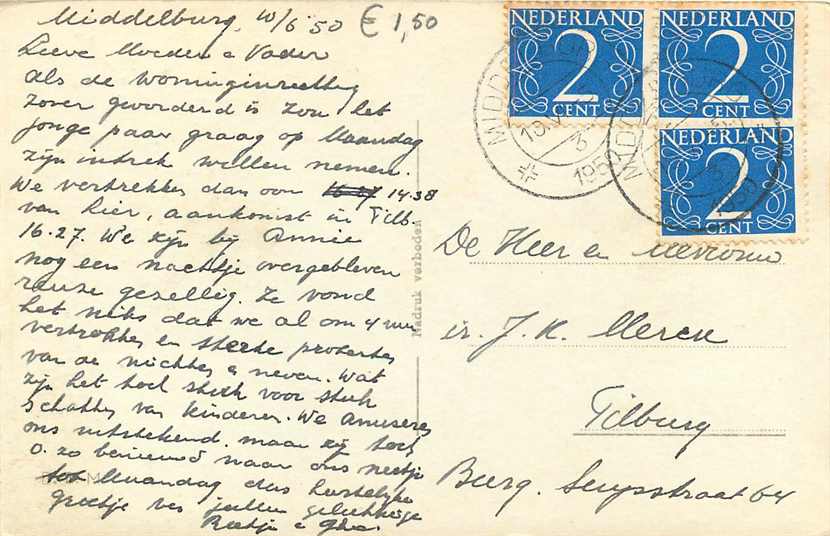 Middelburg, 10/6 '50 € 1,50
Lieve Moeder & Vader
Als de woninginrichting
zover gevorderd is zou het
jonge paar graag op Maandag
zijn intrek willen nemen.
We vertrekken dan om 14.38
van hier, aankomst in Tilb
16.27. We zijn bij Annie
nog een nachtje overgebleven
reuze gezellig. Ze vond
het niks dat we al om 4 uur
vertrokken en sterke protesten
van de nichten en neven. Wat
zijn het toch stuk voor stuk
schatten van kinderen. We amuseren
ons uitstekend. maar zijn toch
o. zo benieuwd naar ons nestje
Maandag dus hartelijke
groetjes van jullie gelukkige
Reetje &
NEDERLAND
2
CENT
NEDERLAND
2
CENT
NEDERLAND
2
CENT
Nadruk verboden
De Heer en Mevrouw
ir. J. K.
Tilburg
Burg. Suysstraat 64